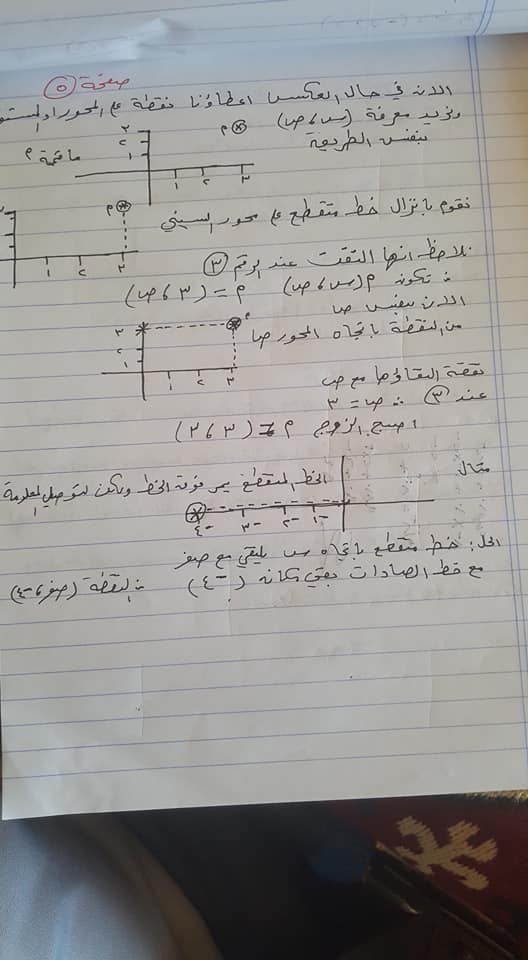 صفحة ٥
الان في حال العكس اعطاؤنا نقطة على المحور او المستو
ونريد معرفة (س، ص)
بنفس الطريقة
ما قيمة م
م
٣
٢
١
١ ٢ ٣
نقوم بإنزال خط متقطع على محور السيني
م
١ ٢ ٣
نلاحظ انها التقت عند الرقم ٣
∴ تكون م (س، ص) م = (٣، ص)
الان بنفس ص
من النقطة باتجاه المحور ص
م
٣
٢
١
١ ٢ ٣
نقطة التقاؤها مع ص
عند ٣ ∴ ص = ٣
اصبح الزوج م = (٣، ٣)
مثال
الخط المتقطع يمر فوق الخط ولكن لتوصيل المعلومة
-٤ -٣ -٢ -١
الحل: خط متقطع باتجاه س يلتقي مع صفر
مع خط الصادات بقي مكانه (-٤) ∴ النقطة (صفر، -٤)